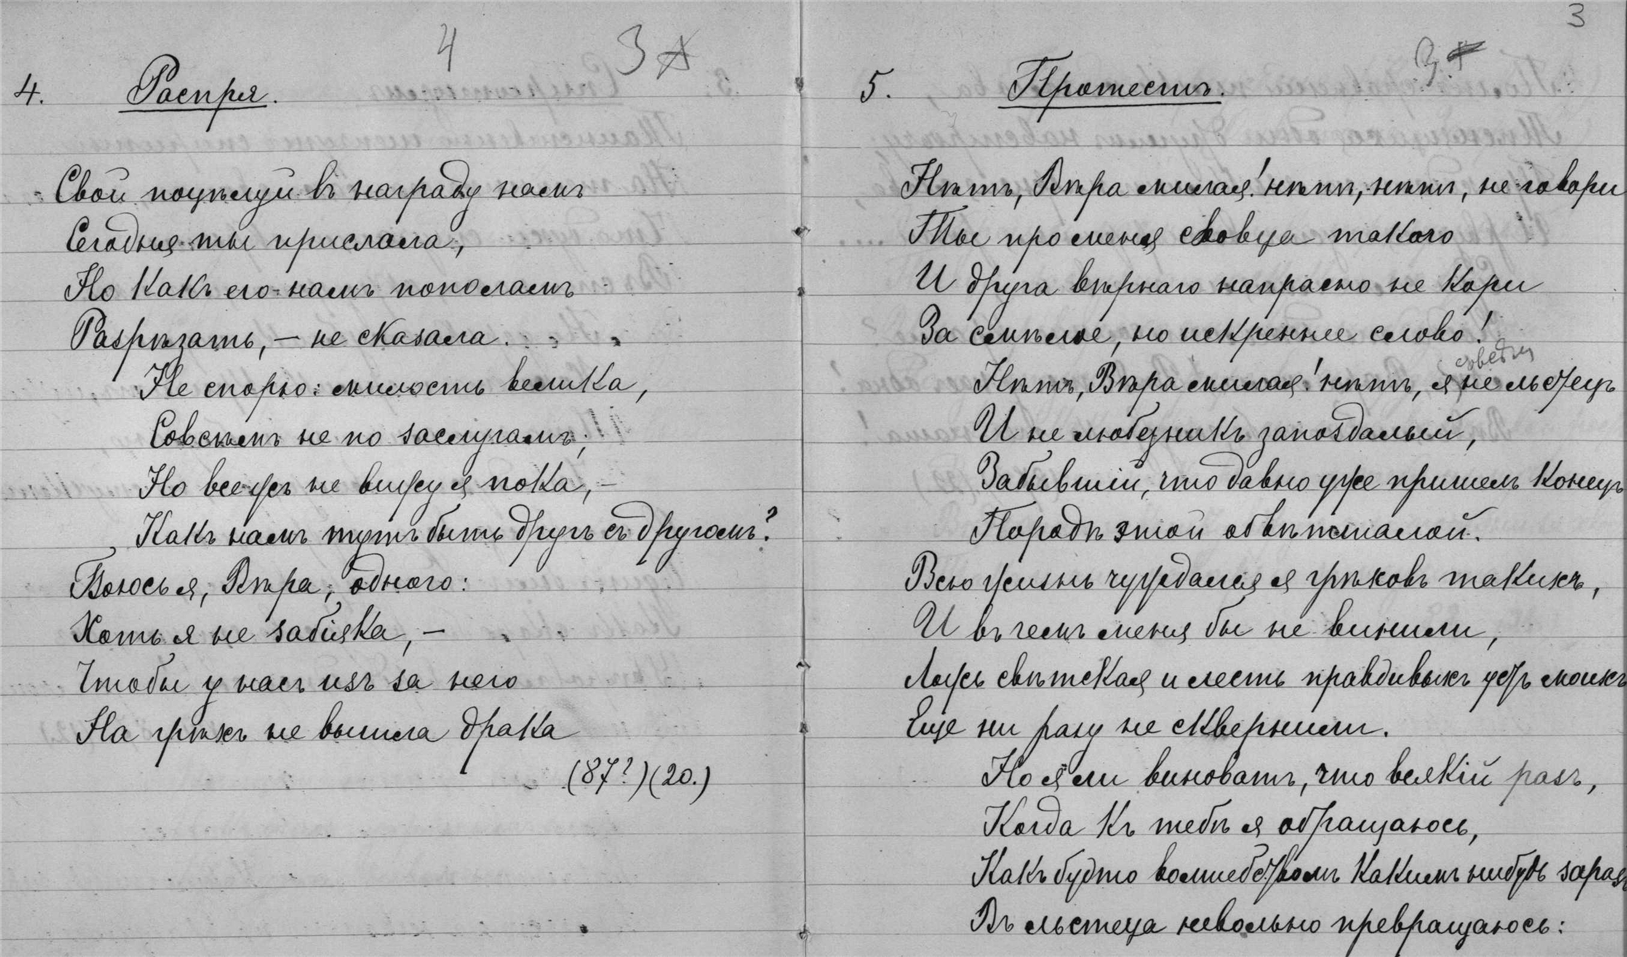 4 3
4. Распря.
Свой поцѣлуй въ награду намъ
Сегодня ты прислала,
Но какъ его намъ пополамъ
Разрѣзать, — не сказала.
Не спорю: милость велика,
Совсѣмъ не по заслугамъ;
Но всежъ не вижу я пока, —
Какъ намъ тутъ быть другъ съ другомъ?
Боюсь я, Вѣра, одного:
Хоть я не забіяка, —
Чтобы у насъ изъ за него
На грѣхъ не вышла драка
(87?) (20.)
3
3.
5. Протестъ.
Нѣтъ, Вѣра милая! нѣтъ, нѣтъ, не говори
Ты про меня словца такого
И друга вѣрнаго напрасно не кори
За смѣлое, но искреннее слово!
Нѣтъ, Вѣра милая! нѣтъ, я не льстецъ
И не любезникъ запоздалый,
Забывшій, что давно уже пришелъ конецъ
Породѣ этой обветшалой.
Всю жизнь чуждался я грѣховъ такихъ,
И въ чемъ меня бы не винили,
Ложь свѣтская и лесть правдивыхъ устъ моихъ
Еще ни разу не сквернили.
Но я ли виноватъ, что всякій разъ,
Когда къ тебѣ я обращаюсь,
Какъ будто волшебствомъ какимъ нибудь заразъ
Въ льстеца невольно превращаюсь: